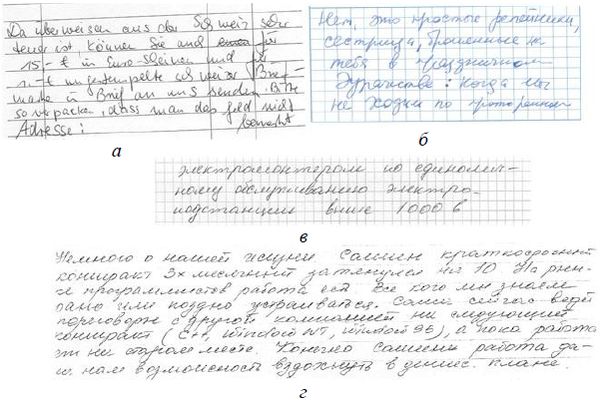 Da überweisen aus der Schweiz sehr
teuer ist können Sie auch für
15,- € in Euro-Scheinen und für
,- € ungestempelte schweizer Brief-
marke in Brief an uns senden. Bitte
so verpacken, dass man das Geld nicht
Adresse: bemerkt
а
Нет, это простые репейники,
сестрица, брошенные на
тебя в праздничном
дурачестве: когда мы
не ходим по проторенным
б
электромонтером по единолич-
ному обслуживанию электро-
подстанции выше 1000 в
в
Немного о нашей жизни. Сашин краткосрочный
контракт 3х месячный затянулся на 10. На рын-
ке программистов работа есть. Все кого мы знаем
рано или поздно устраивался. Саша сейчас ведёт
переговоры с другой компанией на следующий
контракт (C++, Windows NT, Windows 95), а пока работа
на старом месте. Конечно Сашина работа да-
нам возможность вздохнуть в финнс. плане.
г